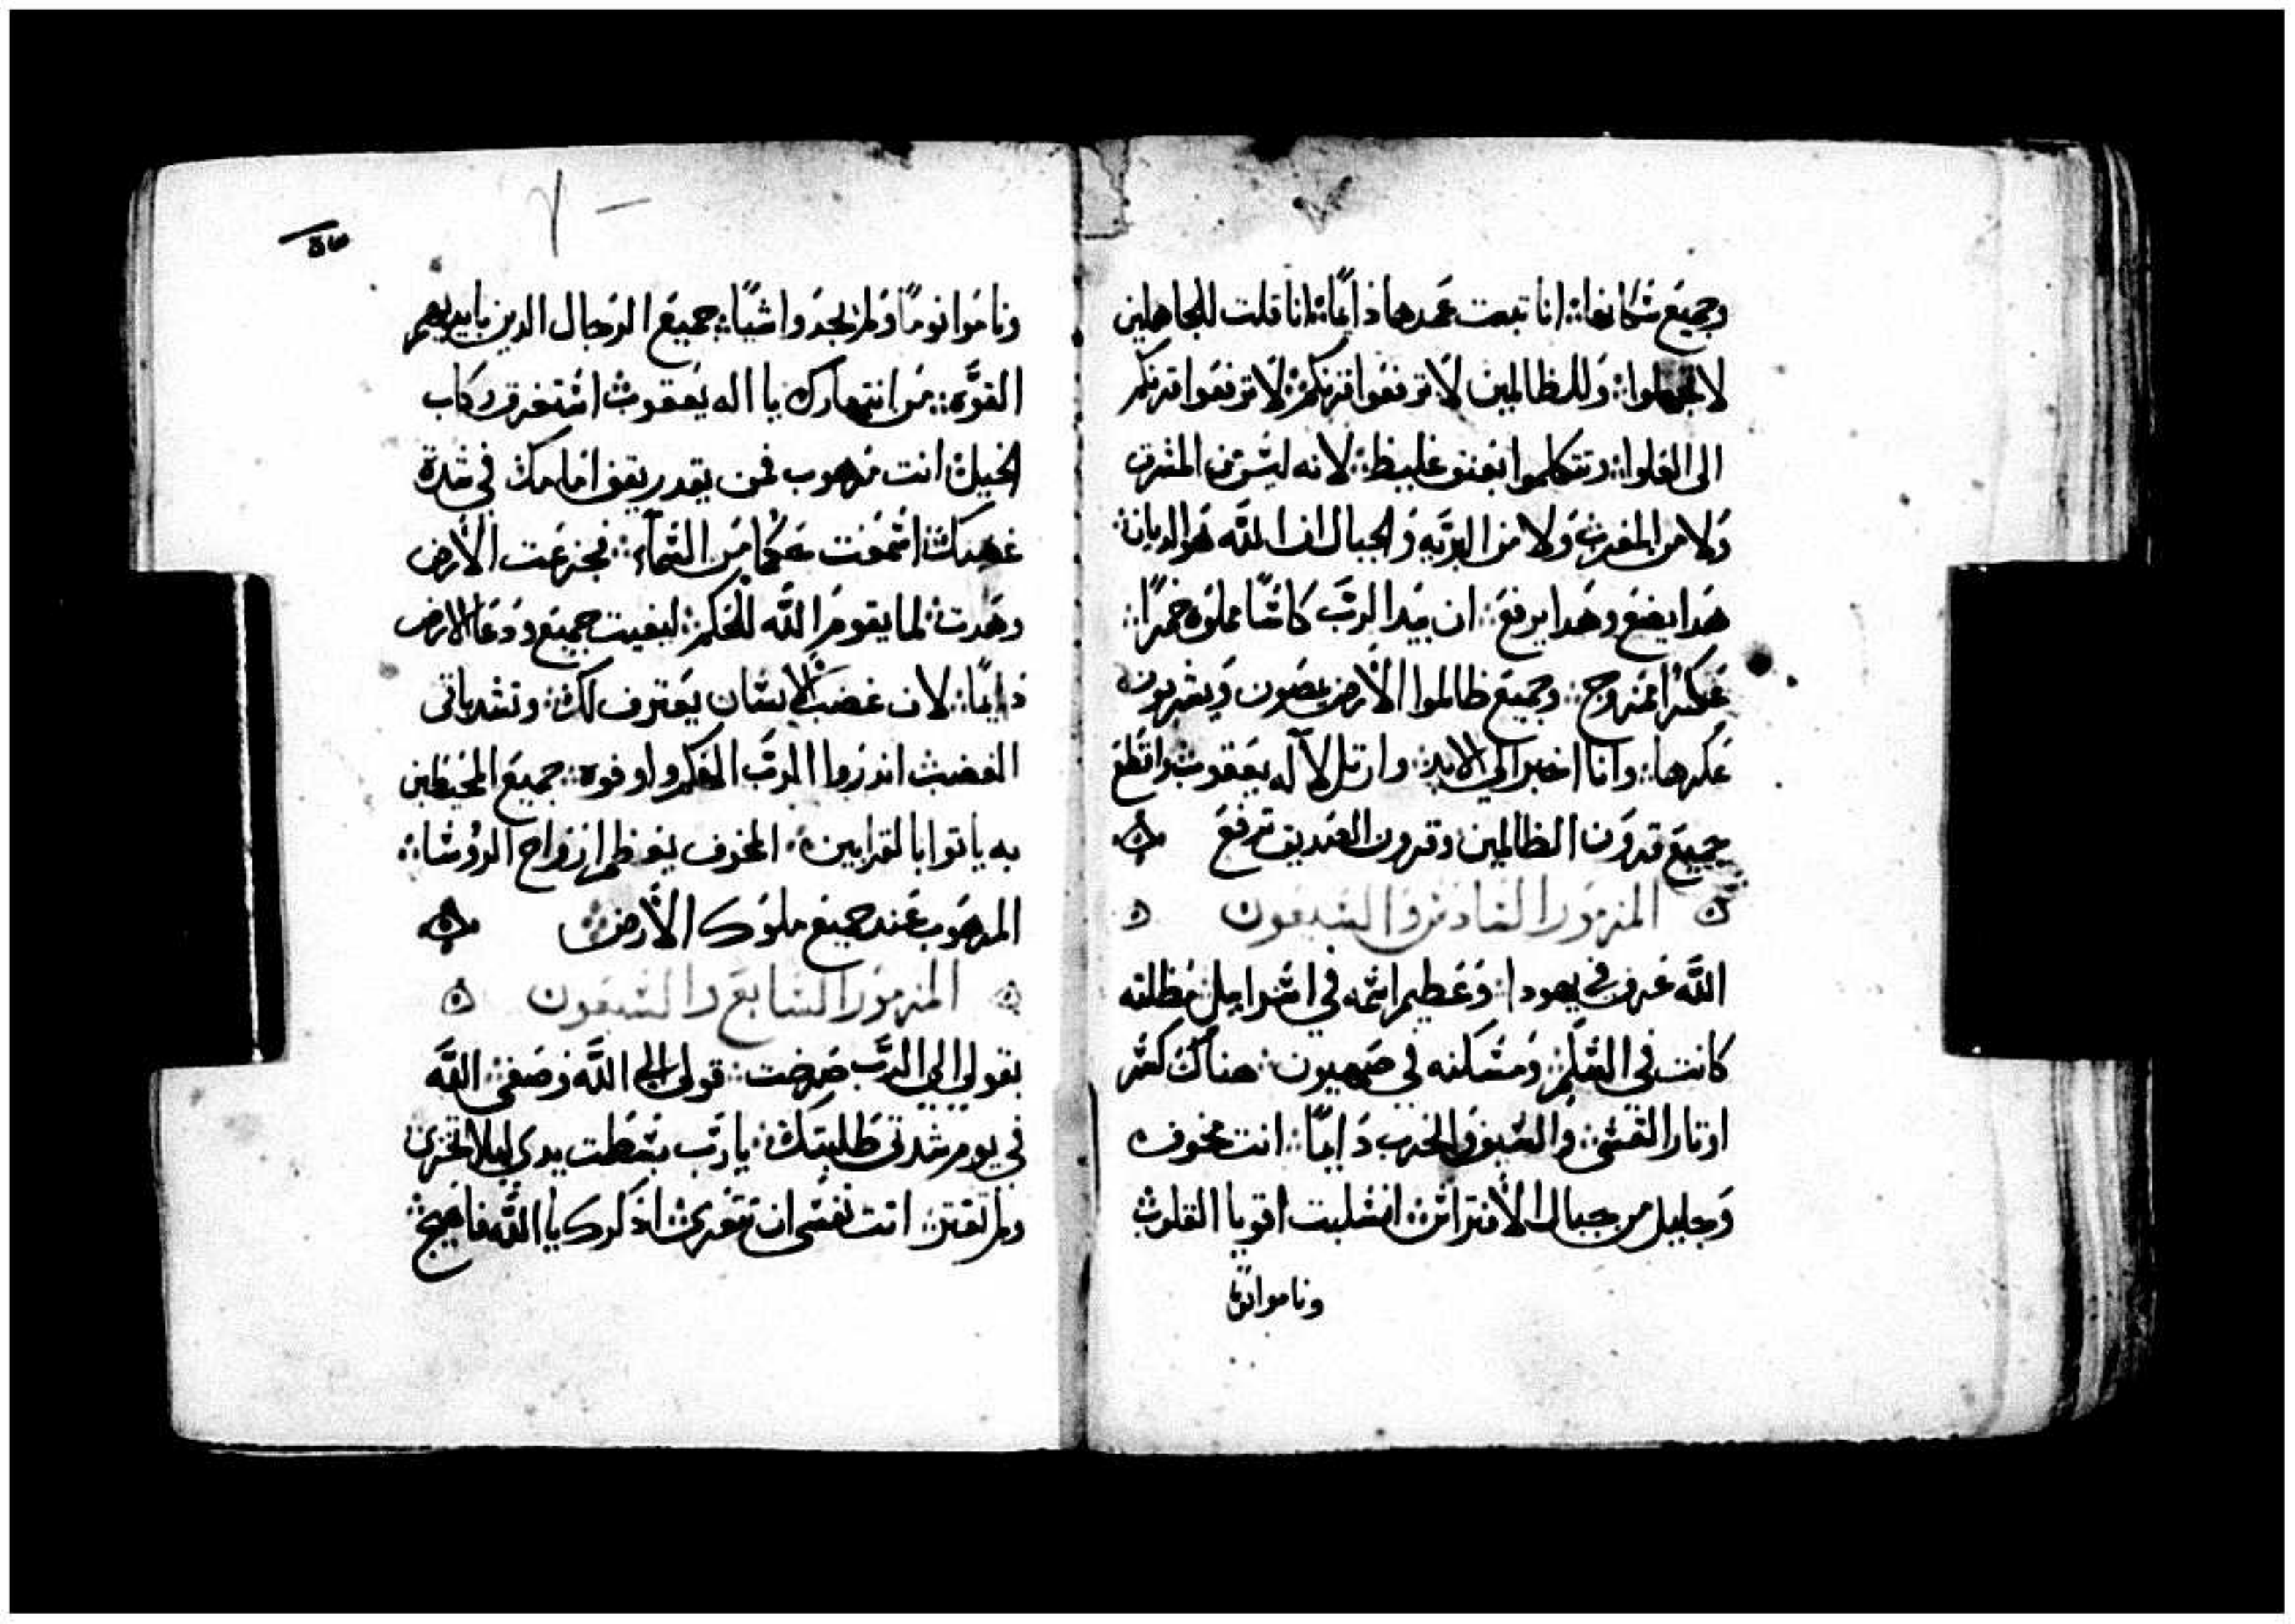 وجميع سكانها: انا تبعت عمدها دايما: انا قلت للجاهلين
لا تجهلوا: وللظالمين لا ترفعوا قرنكم: لا ترفعوا قرنكم
الى العلوا: وتتكلموا بعنق غليظ: لانه ليس من المشرق
ولا من المغرب ولا من البريه والجبال ان الله هو الديان:
هدا يضع وهدا يرفع: ان بيد الرب كاسا مملوه خمرا:
عكرا ممزوج: وجميع ظالموا الارض يمصون ويشربون
عكرها: وانا اخبر الى الابد: وارتل لاله يعقوب واقطع
جميع قرون الظالمين وقرون الصديق ترفع
المزمور السادس والسبعون
الله عرف في يهودا: وعظيم اسمه في اسراييل مظلته
كانت في السلم: ومسكنه في صهيون: هناك كسر
اوتار القسي: والسيف والحرب دايما: انت مخوف
وجليل من جبال الافتراس: انسلبت اقويا القلوب
وناموا نوما
وناموا نوما ولم يجدوا شيا: جميع الرجال الدين بايديهم
القوه: من انتهارك يا اله يعقوب استغرق ركاب
الخيل: انت مرهوب فمن يقدر يقف امامك في شدة
غضبك: اسمعت حكما من السماء: فجزعت الارض
وهدت: لما يقوم الله للحكم: ليغيت جميع ودعا الارض
دايما: لان غضب الانسان يعترف لك: وتشد باقى
الغضب اندروا للرب الهكم واوفوه: جميع المحيطين
به ياتوا بالقرابين: المخوف يعظم ارواح الروسا:
المرهوب عند جميع ملوك الارض
المزمور السابع والسبعون
بقولي الى الرب صرخت: قولى الى الله وصغى: الله
في يوم شدتى طلبتك: يا رب بسطت يدى ليلا تخزى
ولم تفتن: ابت نفسى ان تتعزى: ادكرك يا الله فاهيج: